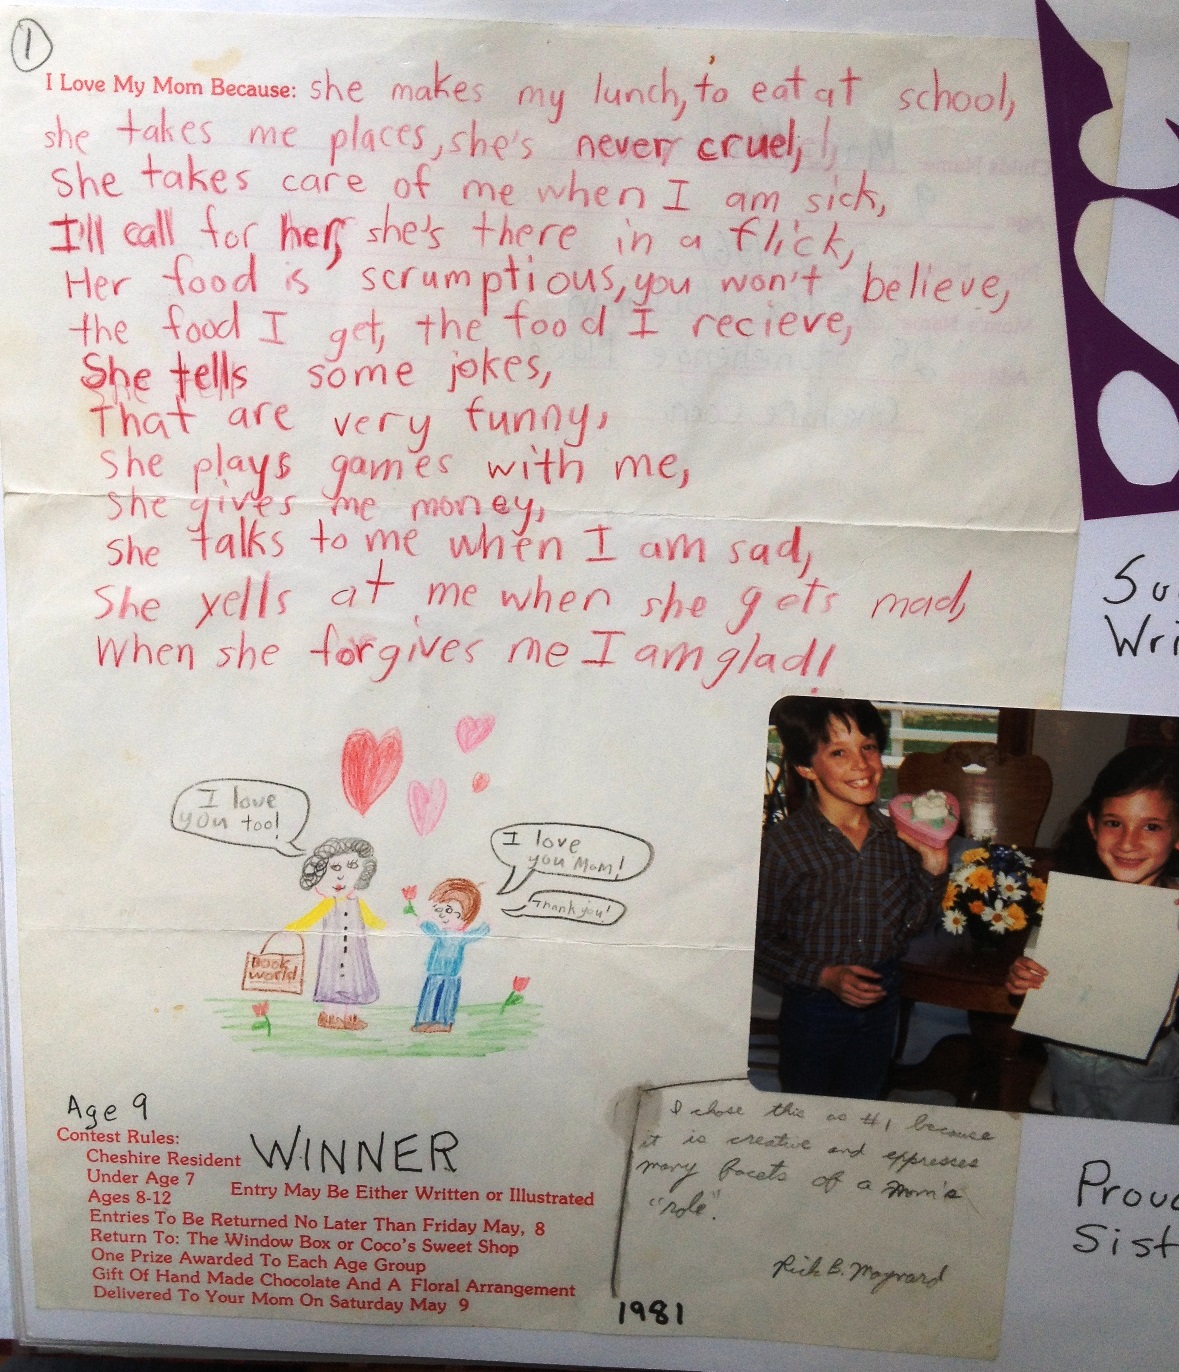 1
I Love My Mom Because: she makes my lunch, to eat at school,
she takes me places, she's never cruel,
She takes care of me when I am sick,
I'll call for her, she's there in a flick,
Her food is scrumptious, you won't believe,
the food I get, the food I recieve,
She tells some jokes,
That are very funny,
She plays games with me,
She gives me money,
She talks to me when I am sad,
She yells at me when she gets mad,
When she forgives me I am glad!
I love
you too!
I love
you Mom!
Thank you!
Book
World
Age 9
WINNER
Contest Rules:
Cheshire Resident
Under Age 7
Ages 8-12
Entry May Be Either Written or Illustrated
Entries To Be Returned No Later Than Friday May, 8
Return To: The Window Box or Coco's Sweet Shop
One Prize Awarded To Each Age Group
Gift Of Hand Made Chocolate And A Floral Arrangement
Delivered To Your Mom On Saturday May 9
I chose this as #1 because
it is creative and expresses
many facets of a mom's
"role".
Rick B. Maynard
1981
Su
Wri
Prou
Sist